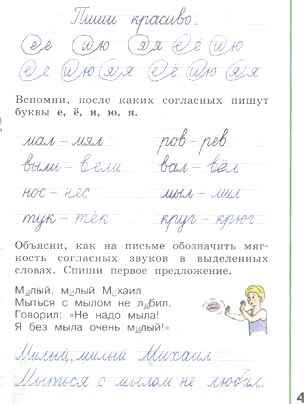 Пиши красиво.
е е и ю я я е ё и ю
е ё и ю я я е ё и ю я я
Вспомни, после каких согласных пишут
буквы е, ё, и, ю, я.
мал – мял ров – рев
выли – вели вал – вёл
нос – нёс мыл – мил
тук – тёк круг – крюг
Объясни, как на письме обозначить мяг-
кость согласных звуков в выделенных
словах. Спиши первое предложение.
Милый, милый Михаил
Мыться с мылом не любил.
Говорил: «Не надо мыла!
Я без мыла очень милый!»
Милый, милый Михаил
Мыться с мылом не любил.
4